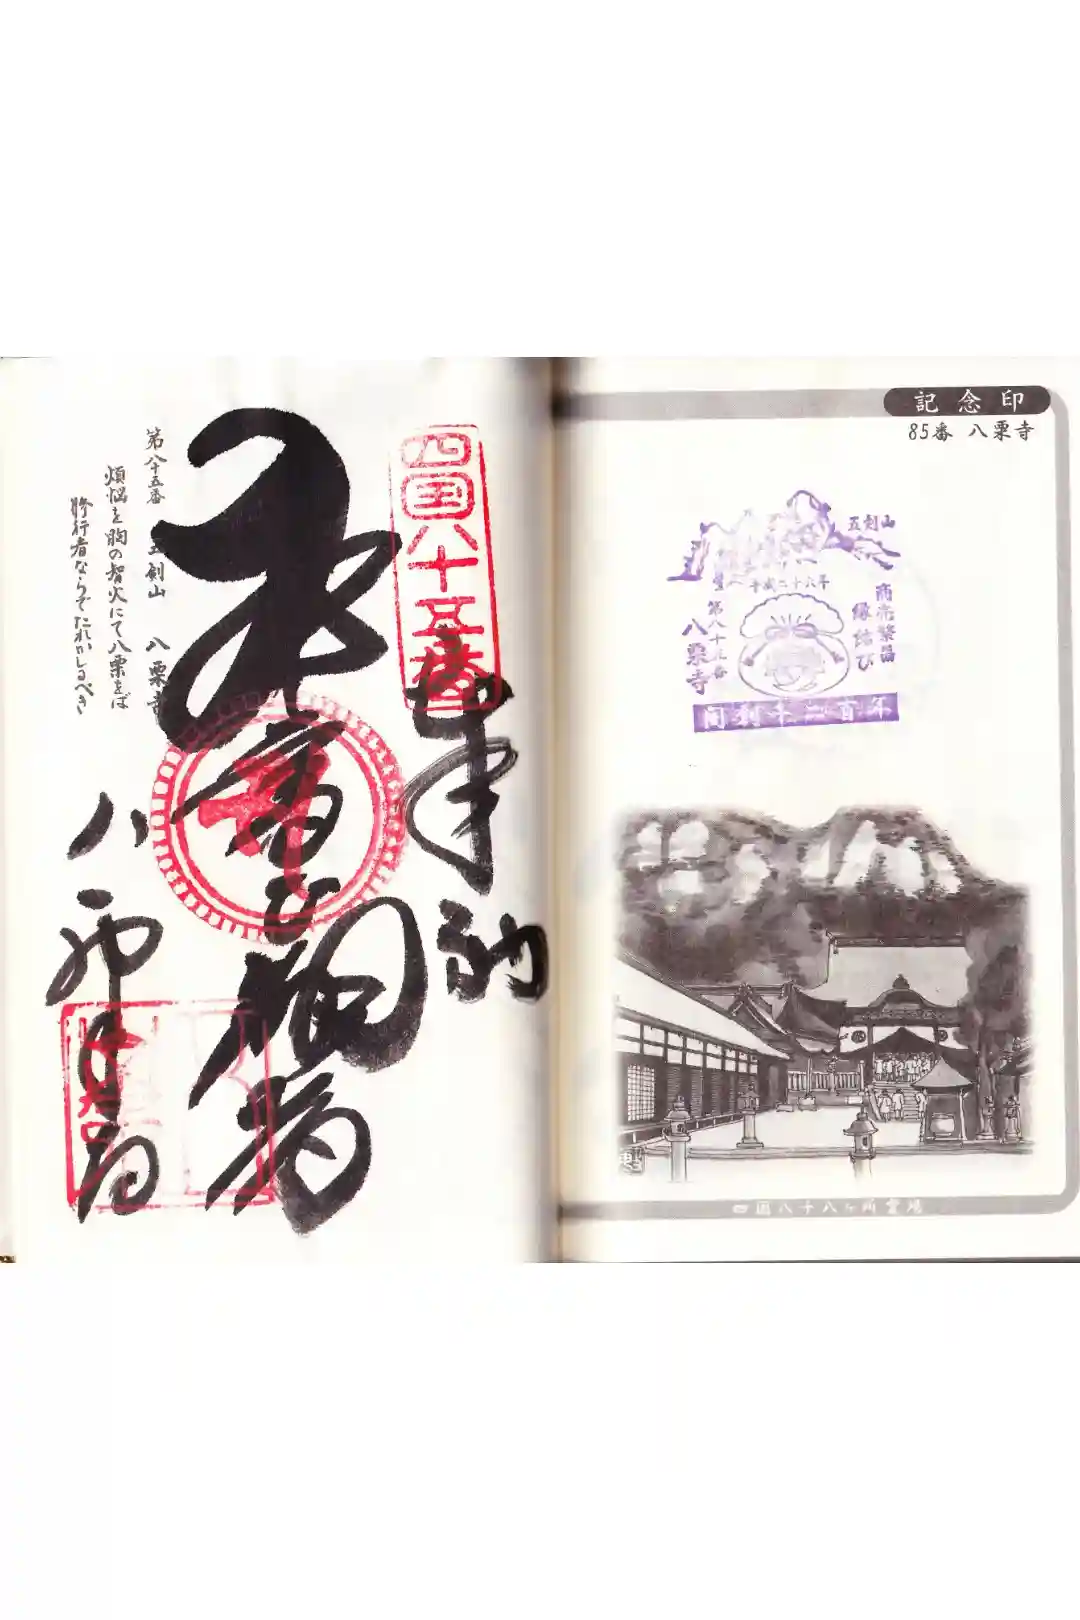 記念印
85番 八栗寺
五剣山
平成二十六年
商売繁昌
縁結び
第八十五番
八栗寺
開創千二百年
四国八十八ヶ所霊場
四国八十五番
奉納
第八十五番 五剣山 八栗寺
煩悩を胸の智火にて八栗をば
修行者ならでたれかしるべき